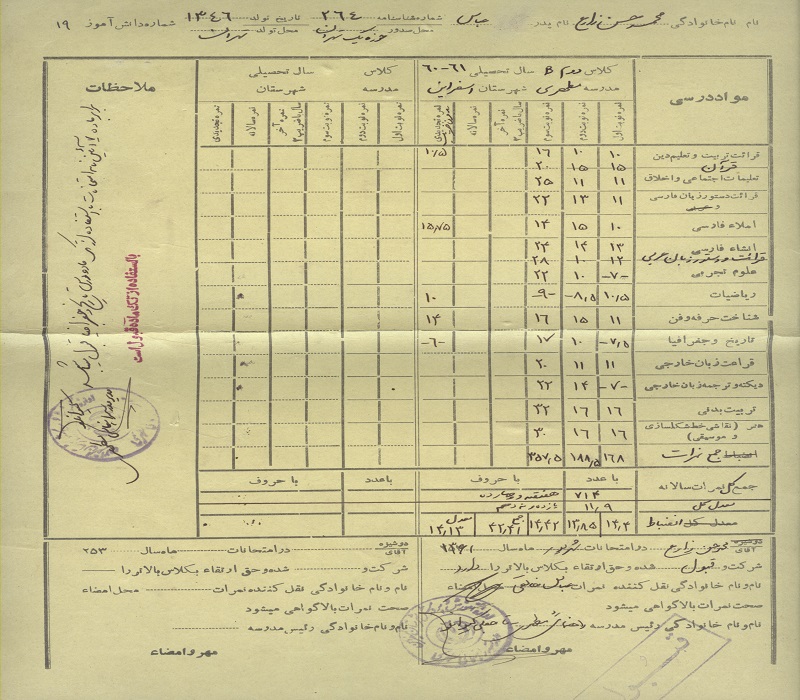 نام نام خانوادگی محمد حسن زارع نام پدر عباس شماره شناسنامه ۲۶۴ تاریخ تولد ۱۳۴۶ شماره دانش آموز ۱۹
محل صدور حوزه یک تهران محل تولد تهران
مواد درسی
کلاس دوم B سال تحصیلی ۶۱-۶۰
مدرسه مطهری شهرستان اسفراین
کلاس سال تحصیلی
مدرسه شهرستان
ملاحظات
نمره نوبت اول نمره نوبت دوم نمره نوبت سوم نمره آخر سال با ضریب ۲ نمره سالانه نمره تجدیدی
نمره نوبت اول نمره نوبت دوم نمره نوبت سوم نمره آخر سال با ضریب ۲ نمره سالانه نمره تجدیدی
قرائت تربیت و تعلیم دین ۱۰ ۱۰ ۱۶ ۱۰/۵
قرآن ۱۵ ۱۵ ۲۰
تعلیمات اجتماعی و اخلاق ۱۱ ۱۱ ۲۵
قرائت دستور زبان فارسی ۱۱ ۱۳ ۲۲
املاء فارسی ۱۰ ۱۵ ۱۴ ۱۵/۷۵
انشاء فارسی ۱۳ ۱۴ ۲۴
قرائت و دستور زبان عربی ۱۲ ۱۰ ۲۸
علوم تجربی -۷- ۱۰ ۲۲
ریاضیات ۱۰/۵ -۸/۵ -۹- ۱۰
شناخت حرفه و فن ۱۱ ۱۵ ۱۶ ۱۴
تاریخ و جغرافیا -۷/۵ ۱۰ ۱۷ -۶-
قرائت زبان خارجی ۱۱ ۱۱ ۲۰
دیکته و ترجمه زبان خارجی -۷- ۱۴ ۲۲
تربیت بدنی ۱۶ ۱۶ ۳۲
هنر (نقاشی خط شکلسازی و موسیقی) ۱۶ ۱۶ ۳۰
انضباط جمع نمرات ۱۶۸ ۱۸۸/۵ ۳۵۷/۵
با عدد با حروف با عدد با حروف
جمع کل نمرات سالانه ۷۱۴ هفتصد و چهارده
معدل کل ۱۱/۹ یازده و نه دهم
معدل کل انضباط ۱۴/۴ ۱۳/۸۵ ۱۴/۴۲ جمع ۴۲/۴۱ معدل ۱۴/۱۳
با استفاده از تک ماده قبول است
دوشیزه آقای محمد حسن زارع در امتحانات شهریور ماه سال ۱۳۶۱
شرکت و قبول شده و حق ارتقاء بکلاس بالاتر را دارد
نام و نام خانوادگی نقل کننده نمرات امضاء
صحت نمرات بالا گواهی میشود
نام و نام خانوادگی رئیس مدرسه
مهر و امضاء
دوشیزه آقای در امتحانات ماه سال ۲۵۳
شرکت و شده و حق ارتقاء بکلاس بالاتر را
نام و نام خانوادگی نقل کننده نمرات محل امضاء
صحت نمرات بالا گواهی میشود
نام و نام خانوادگی رئیس مدرسه
مهر و امضاء